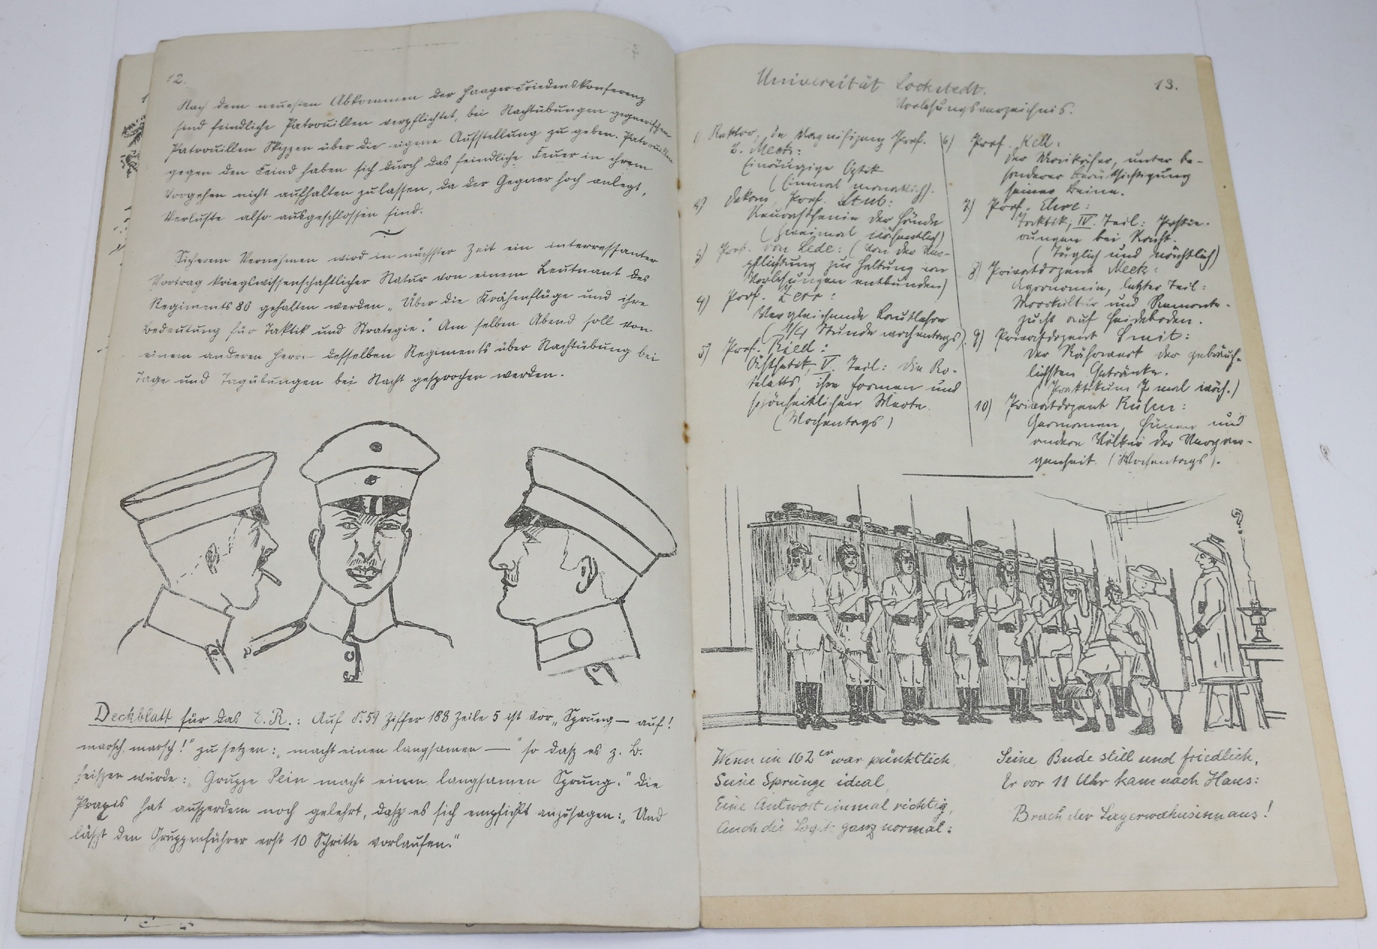 12.
Nach dem neuesten Abkommen der Haager-Friedenskonferenz
sind feindliche Patrouillen verpflichtet, bei Nachtübungen gegnerischen
Patrouillen Skizzen über die eigene Aufstellung zu geben. Patrouillen
gegen den Feind haben sich durch das feindliche Feuer in ihrem
Vorgehen nicht aufhalten zu lassen, da der Gegner hoch anlegt,
Verluste also ausgeschlossen sind.
Sicherem Vernehmen wird in nächster Zeit ein interressanter
Vortrag kriegswissenschaftlicher Natur von einem Leutnant des
Regiments 80 gehalten werden „Über die Krähenflüge und ihre
Bedeutung für Taktik und Strategie." Am selben Abend soll von
einem anderen Herrn desselben Regiments über Nachtübung bei
Tage und Tagübungen bei Nacht gesprochen werden.
Deckblatt für das E.R.: Auf S.59 Ziffer 188 Zeile 5 ist vor „Sprung — auf!
marsch marsch!" zu setzen: „macht einen langsamen —" so daß es z. B.
heißen würde: „Gruppe Pein macht einen langsamen Sprung." Die
Praxis hat außerdem noch gelehrt, daß es sich empfiehlt anzusagen: „Und
läßt den Gruppenführer erst 10 Schritte vorlaufen."
13.
Universität Lockstedt.
Vorlesungsverzeichnis.
1) Rektor, Prof.
Einäugige Optik
(Einmal monatlich).
2) Dekan, Prof. Stub:
Neurasthenie der Hände
(zweimal wöchentlich)
3) Prof. von Lede: (von der Ver-
pflichtung zur Haltung von
Vorlesungen entbunden)
4) Prof. Zerr:
Vergleichende Lautlehre
(1/4 Stunde wochentags)
5) Prof. Ried:
Ästhetik, V. Teil: Die Ko-
teletts, ihre Formen und
schönheitlichen Werte.
(Wochentags)
6) Prof. Kell:
Der Musiker, unter be-
sonderer Berücksichtigung
seiner Beine.
7) Prof. Ehre:
Taktik, IV. Teil:
bei Nacht.
(Täglich und nächtlich)
8) Privatdozent Meck:
Agronomie, letzter Teil:
Moorkultur und Remonte-
zucht auf Heideboden.
9) Privatdozent Smit:
Der Nährwert der gebräuch-
lichsten Getränke.
(Praktikum 7 mal wöch.)
10) Privatdozent Kühn:
Germanen, Hünen und
andere Völker der Vergan-
genheit. (Wochentags).
Wenn im 162er war pünktlich
Seine Sprünge ideal,
Eine Antwort einmal richtig,
Auch die Logik ganz normal:
Seine Bude still und friedlich,
Er vor 11 Uhr kam nach Haus:
Brach der Lagerwahnsinn aus!